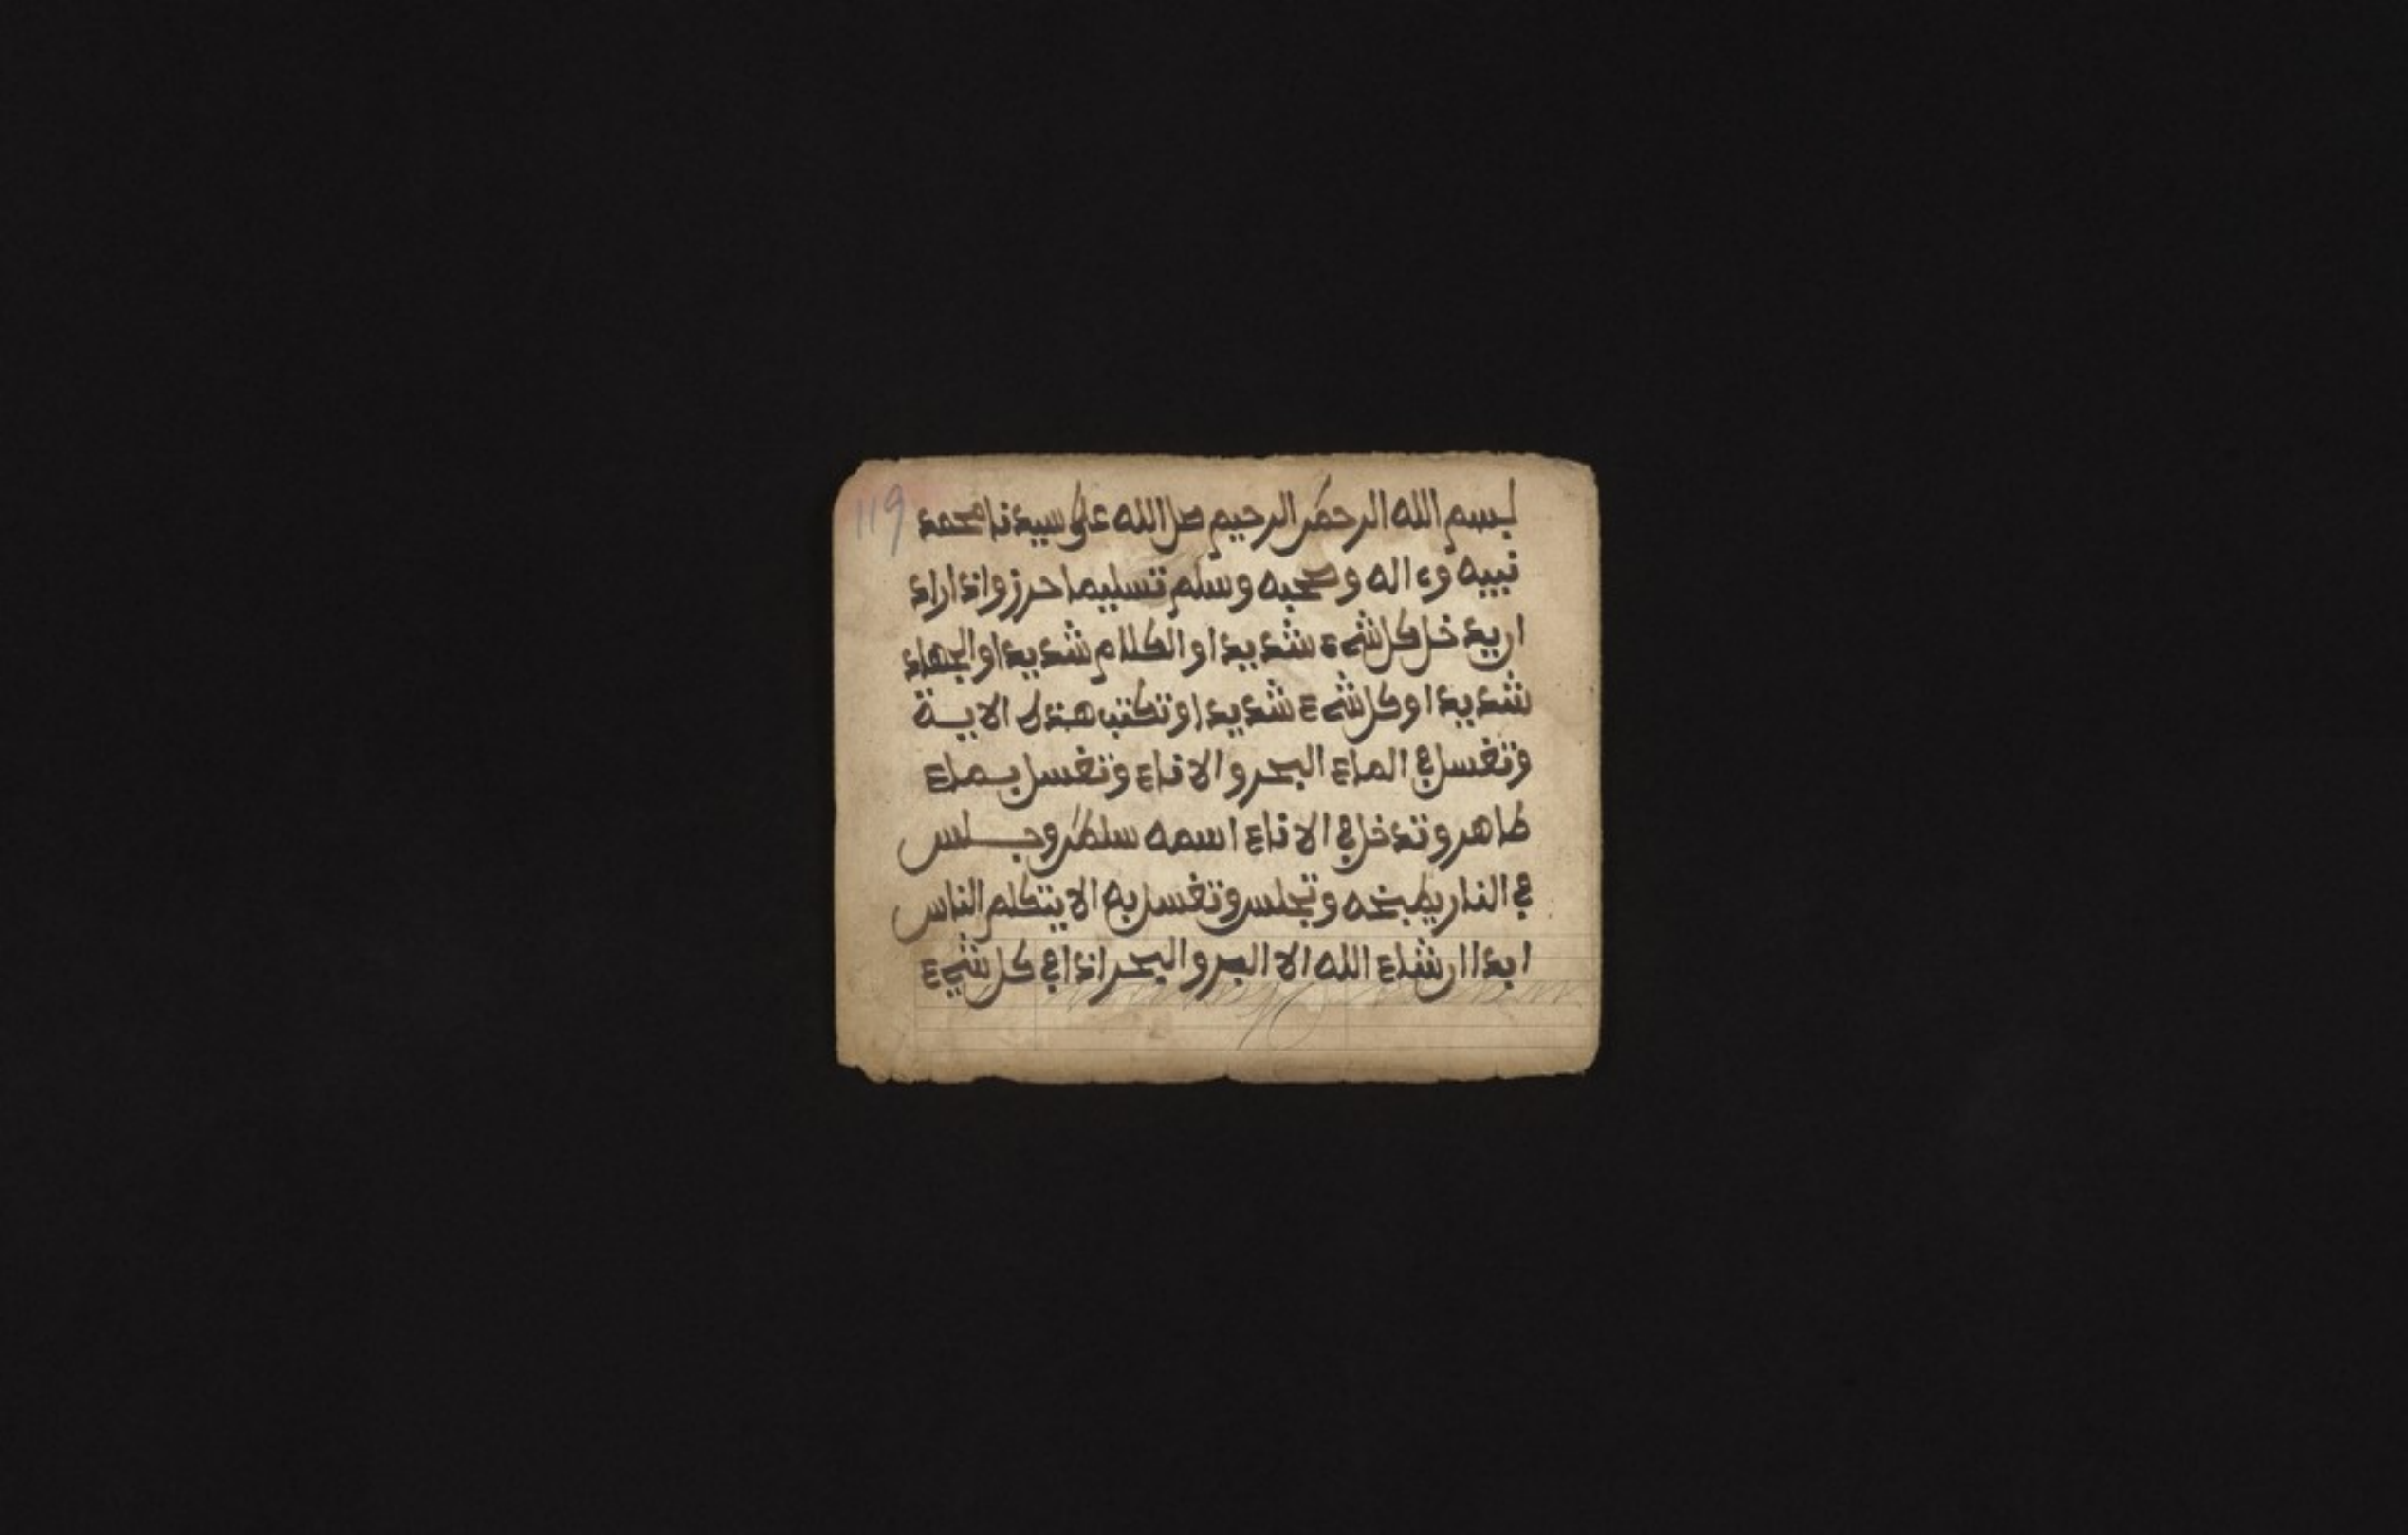 119
بسم الله الرحمن الرحيم صل الله على سيدنا محمد
نبيه وءاله وصحبه وسلم تسليما حرز واذا اراد
اريد خل كل شيء شديدا والكلام شديدا والجهاد
شديدا وكل شيء شديدا وتكتب هذه الاية
وتغسل في الماء البحر والاناء وتغسل بماء
طاهر وتدخل في الاناء اسمه سلطن وجلس
في النار يطبخه وتجلس وتغسل به لا يتكلم الناس
ابدا ان شاء الله الا البر والبحر اذا في كل شيء